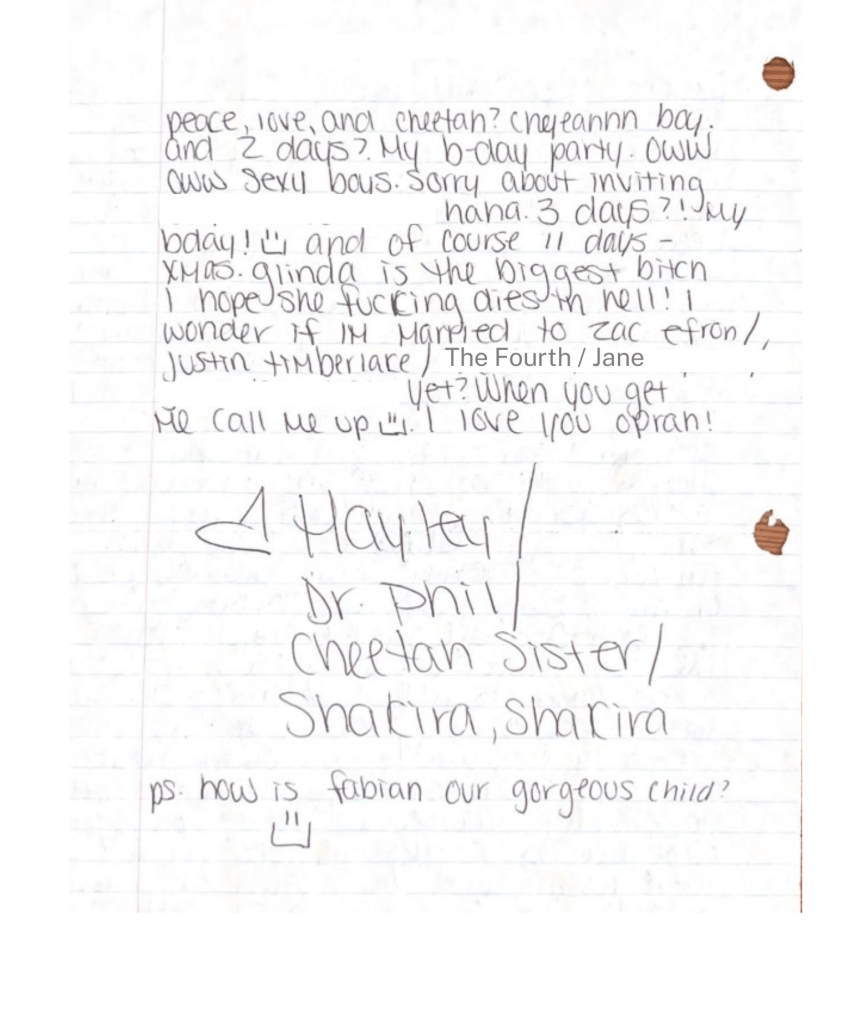 peace, love, and cheetah? cheyeannn bay.
and 2 days? My b-day party. oww
oww sexy boys. Sorry about inviting
haha. 3 days?! My
bday! and of course 11 days -
XMas. glinda is the biggest bitch
I hope she fucking dies in hell! I
wonder if IM Married to zac efron/,
justin timberlake/ The Fourth / Jane
yet? When you get
Me call me up. I love you oprah!
Hayley/
Dr. Phil/
Cheetah Sister/
Shakira, Shakira
ps. how is fabian our gorgeous child?